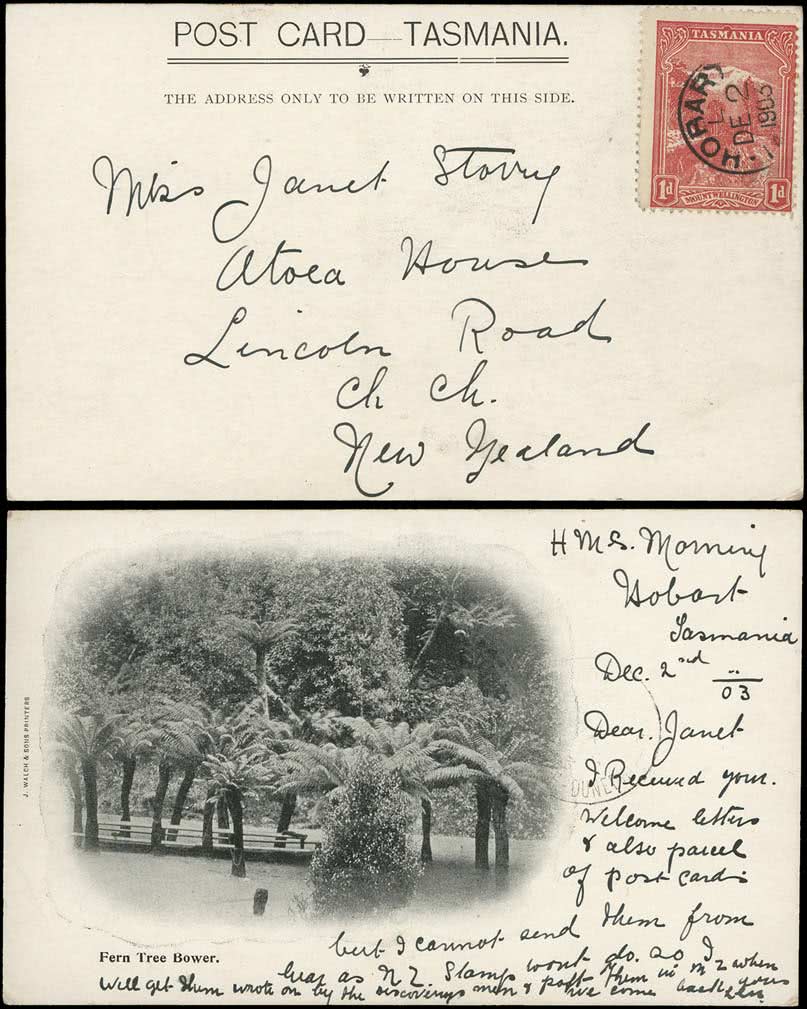 POST CARD—TASMANIA.
THE ADDRESS ONLY TO BE WRITTEN ON THIS SIDE.
TASMANIA
HOBART
DE 2
1903
1d MOUNT WELLINGTON 1d
Miss Janet Storry
House
Lincoln Road
Ch Ch.
New Zealand
H M S. Morning
Hobart
Tasmania
Dec. 2nd 03
Dear. Janet
I Received your.
Welcome letters
& also parcel
of post cards
but I cannot send them from
hear as N Z. Stamps wont do. so I
Will get them wrote on by the discoverys men & post them in N Z when
we come back yours
J. WALCH & SONS PRINTERS
Fern Tree Bower.